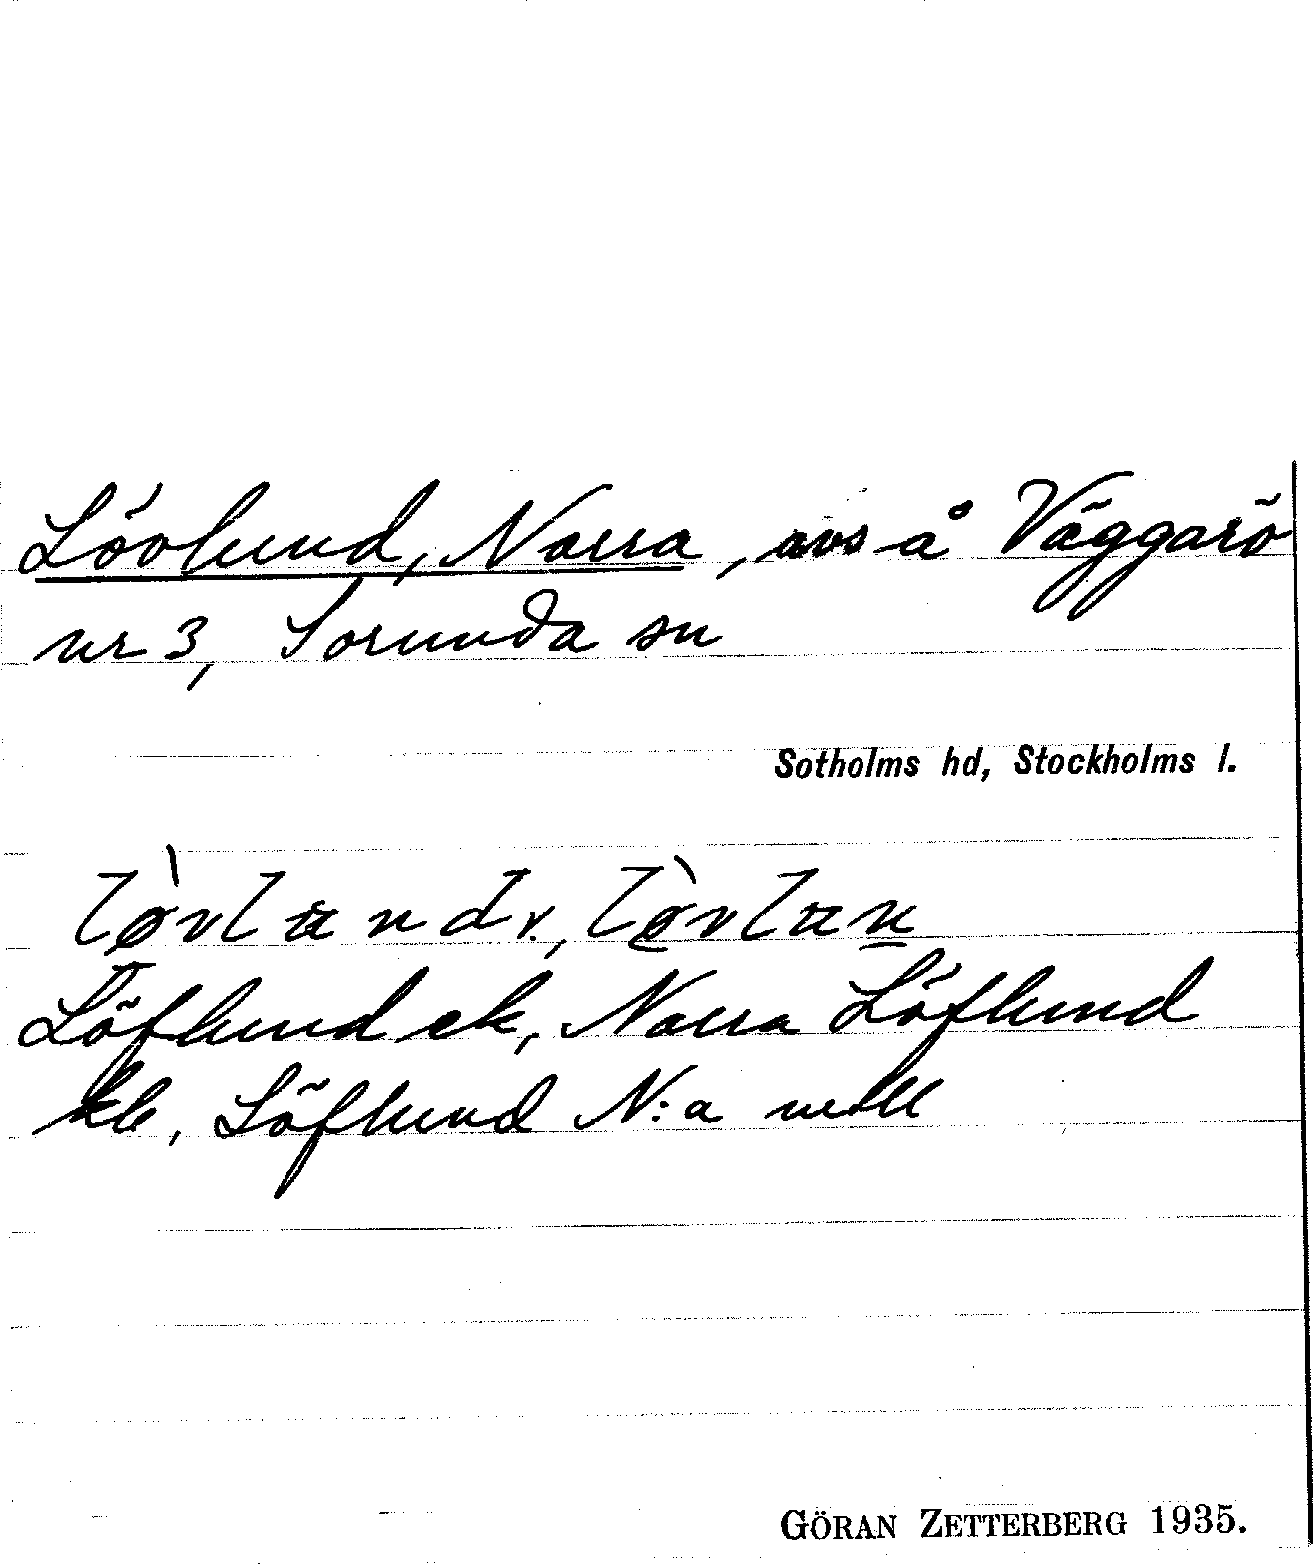 Lövlund, Norra, avs å Väggarö
nr 3, Sorunda sn
Sotholms hd, Stockholms l.
Löflund ek, Norra Löflund
kb, Löflund N:a
GÖRAN ZETTERBERG 1935.